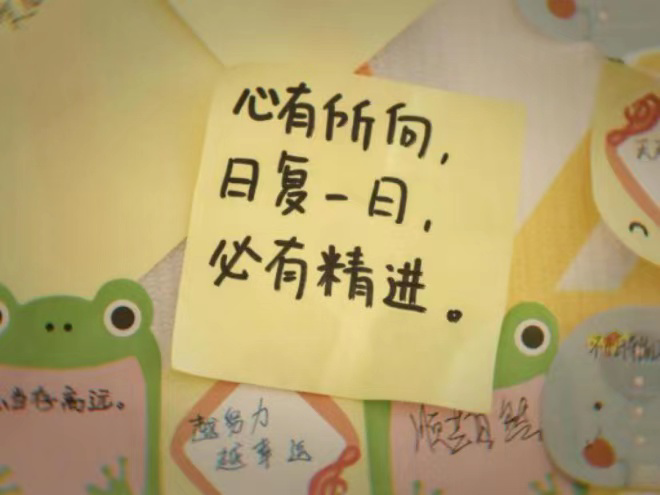 心有所向，
日复一日，
必有精进。
当存高远。
越努力
越幸运